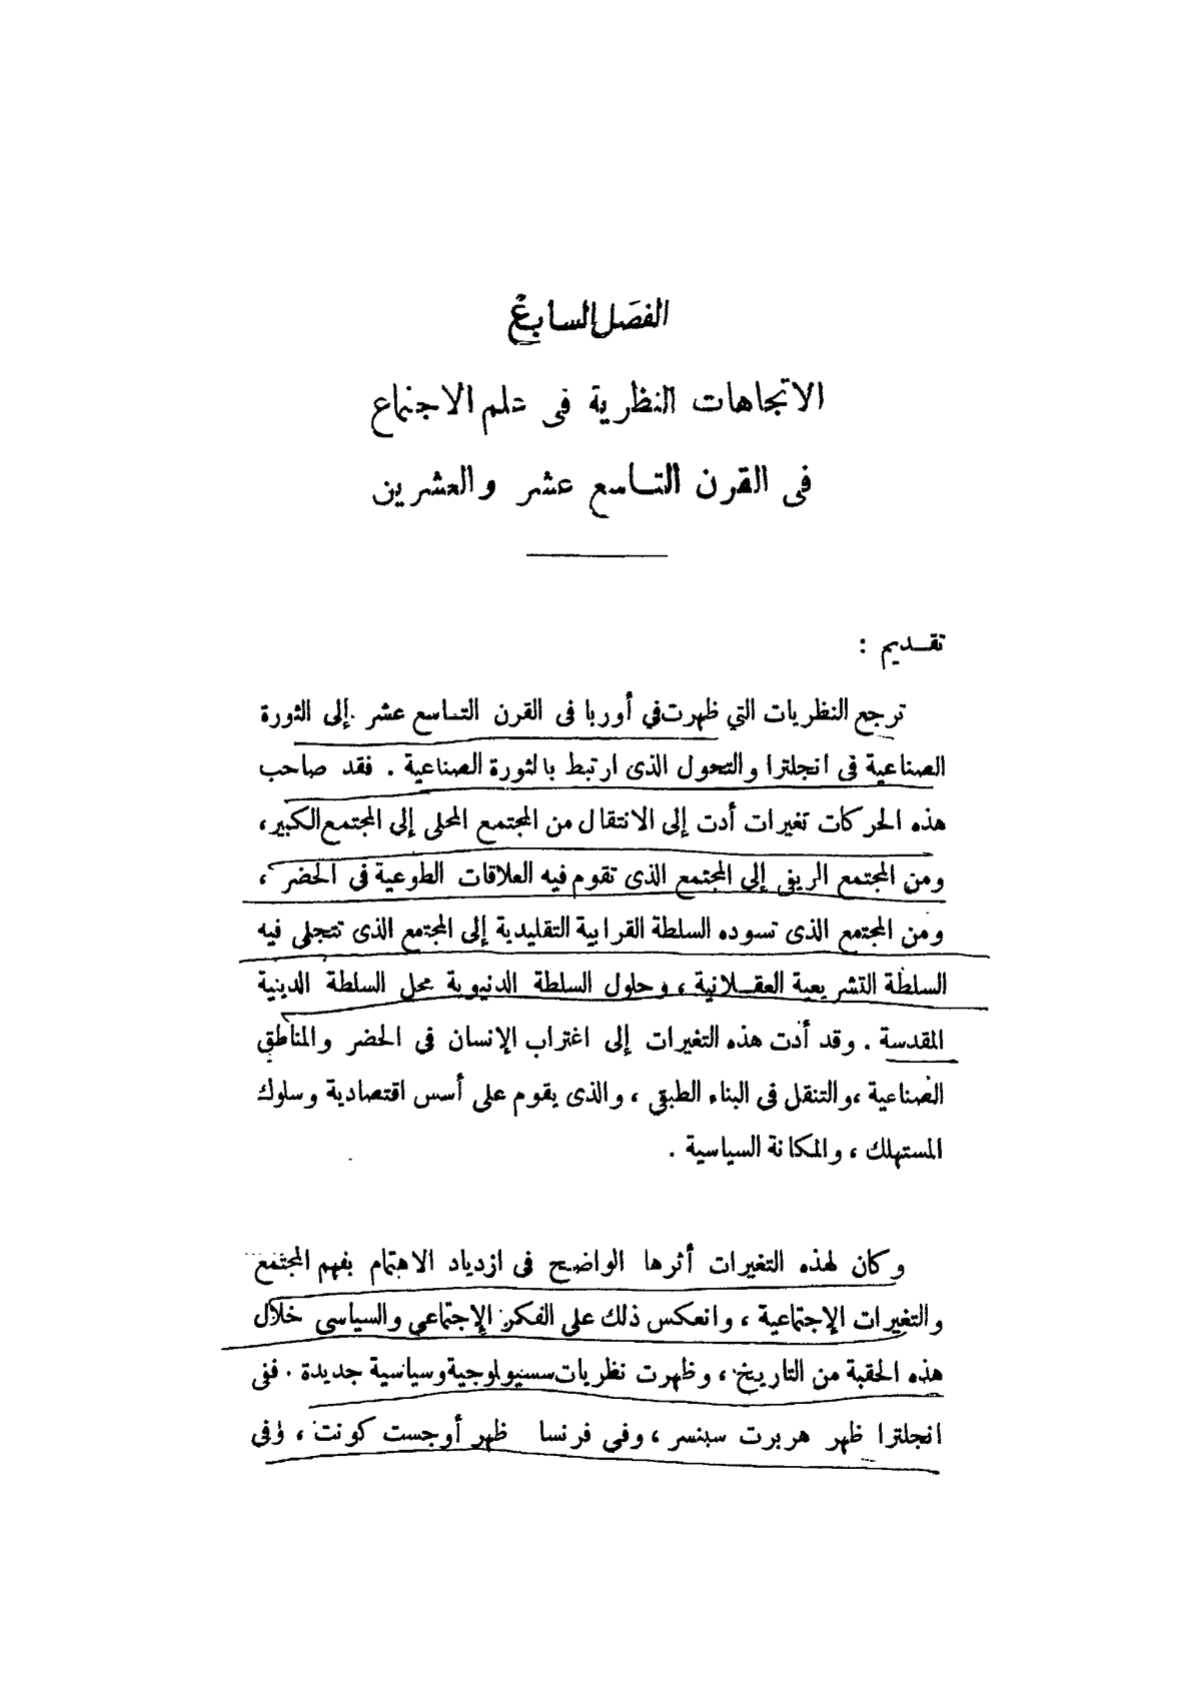 الفصل السابع
الاتجاهات النظرية فى علم الاجتماع
فى القرن التاسع عشر والعشرين
تقديم :
ترجع النظريات التي ظهرت في أوربا فى القرن التاسع عشر إلى الثورة
الصناعية فى انجلترا والتحول الذى ارتبط بالثورة الصناعية . فقد صاحب
هذه الحركات تغيرات أدت إلى الانتقال من المجتمع المحلى إلى المجتمع الكبير ،
ومن المجتمع الريفى إلى المجتمع الذى تقوم فيه العلاقات الطوعية فى الحضر ،
ومن المجتمع الذى تسوده السلطة القرابية التقليدية إلى المجتمع الذى تتجلى فيه
السلطة التشريعية العقلانية ، وحلول السلطة الدنيوية محل السلطة الدينية
المقدسة . وقد أدت هذه التغيرات إلى اغتراب الإنسان فى الحضر والمناطق
الصناعية ، والتنقل فى البناء الطبقى ، والذى يقوم على أسس اقتصادية وسلوك
المستهلك ، والمكانة السياسية .
وكان لهذه التغيرات أثرها الواضح فى ازدياد الاهتمام بفهم المجتمع
والتغيرات الإجتماعية ، وانعكس ذلك على الفكر الإجتماعي والسياسى خلال
هذه الحقبة من التاريخ ، وظهرت نظريات سسيولوجية وسياسية جديدة . ففى
انجلترا ظهر هربرت سبنسر ، وفى فرنسا ظهر أوجست كونت ، وفى